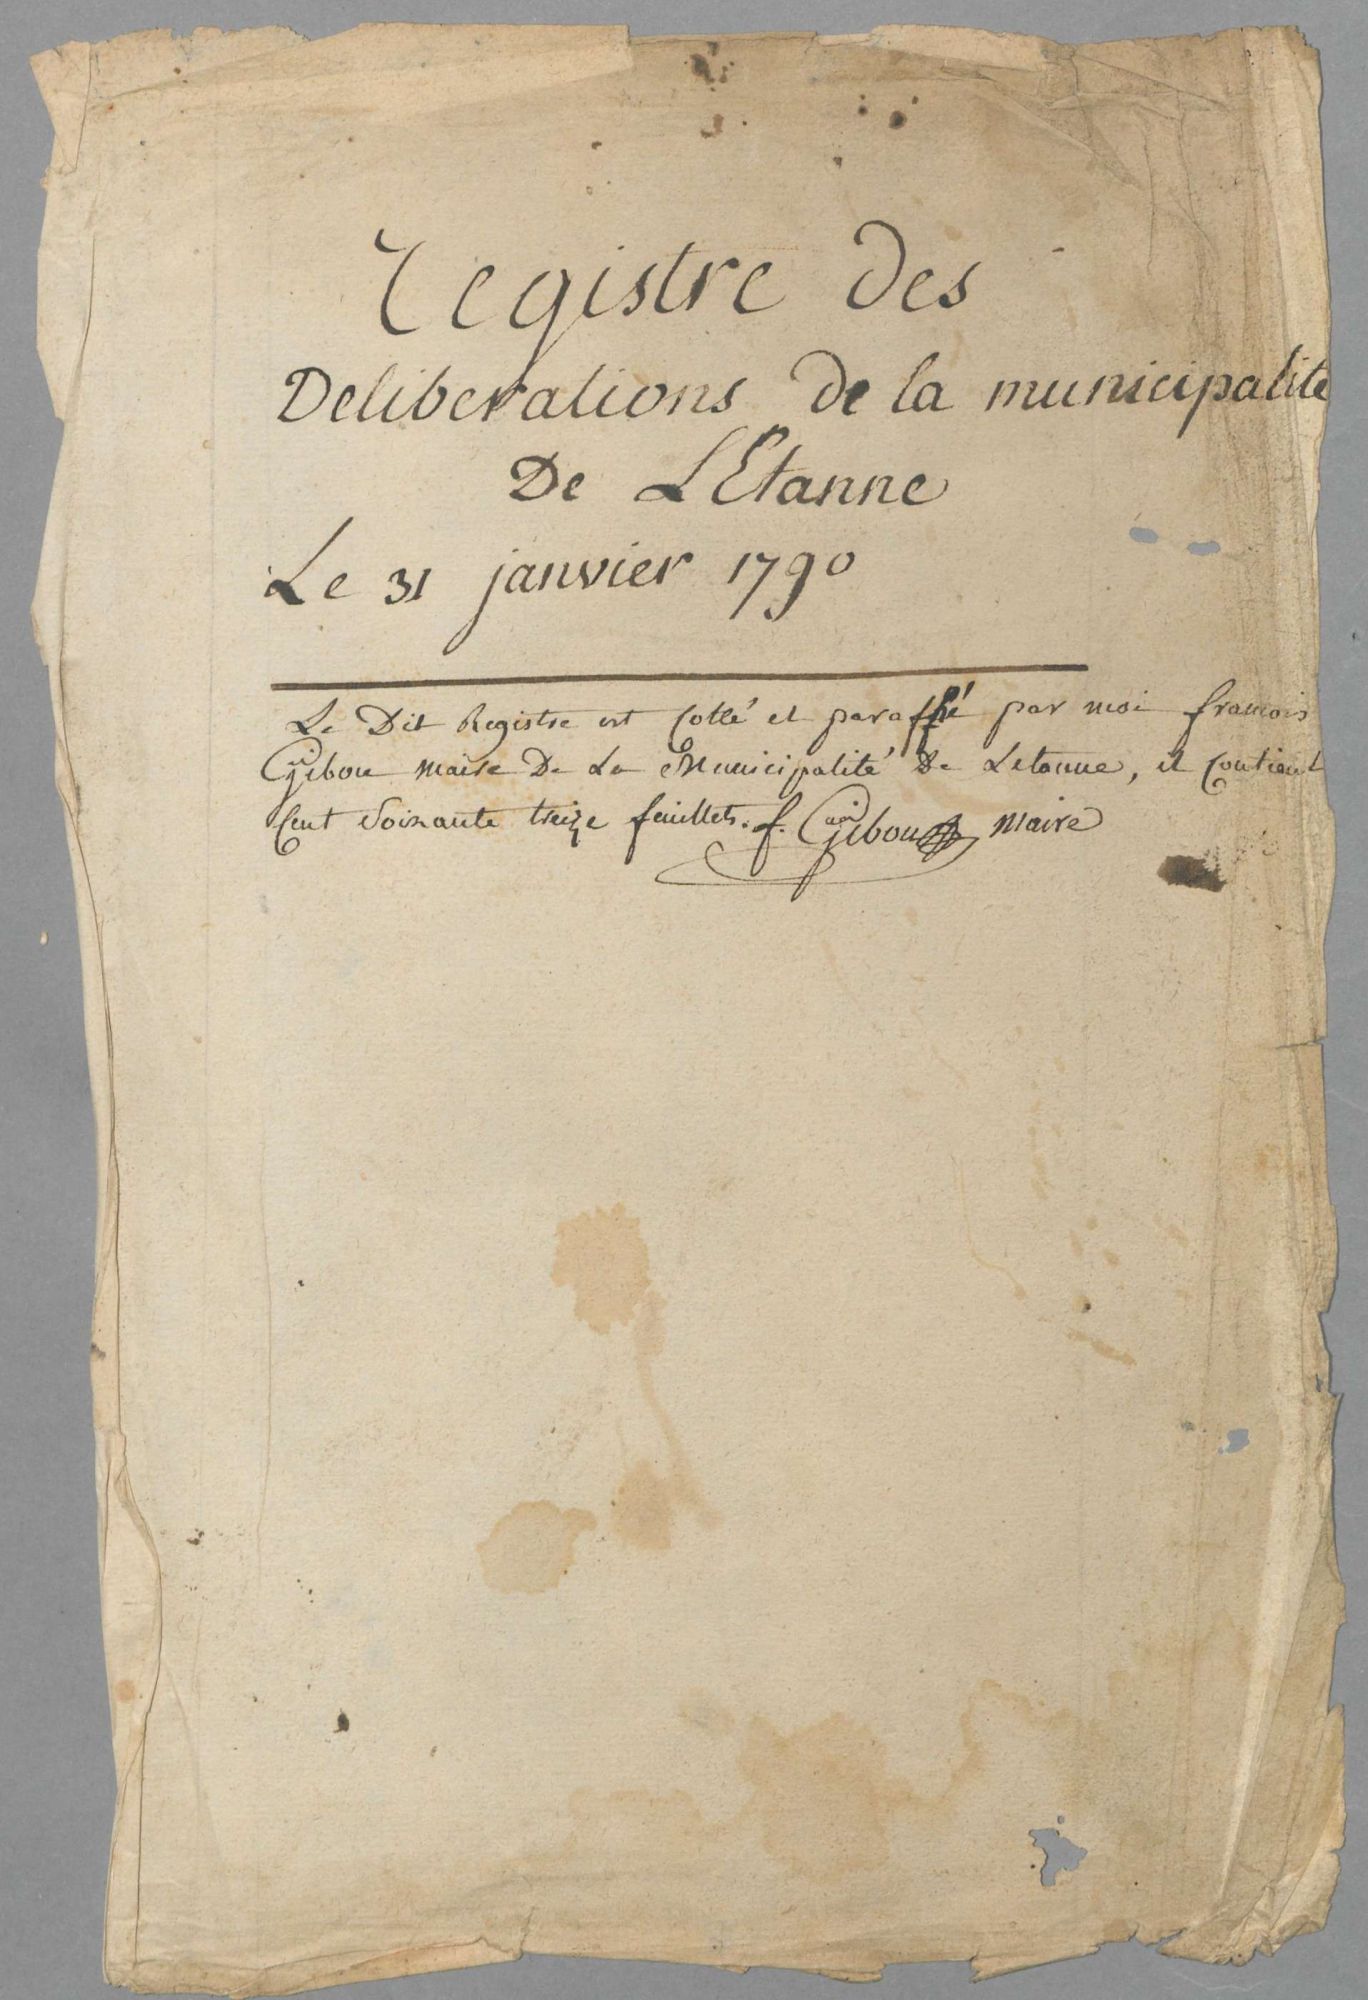 Registre des
Deliberations de la municipalite
De LEtanne
Le 31 janvier 1790
Le Dit Registre est Cotté et paraffhé par moi francois
Gibou maire De La Municipalité De Letanne, et Contient
Cent Soixante treize feuillets. f. Gibou maire